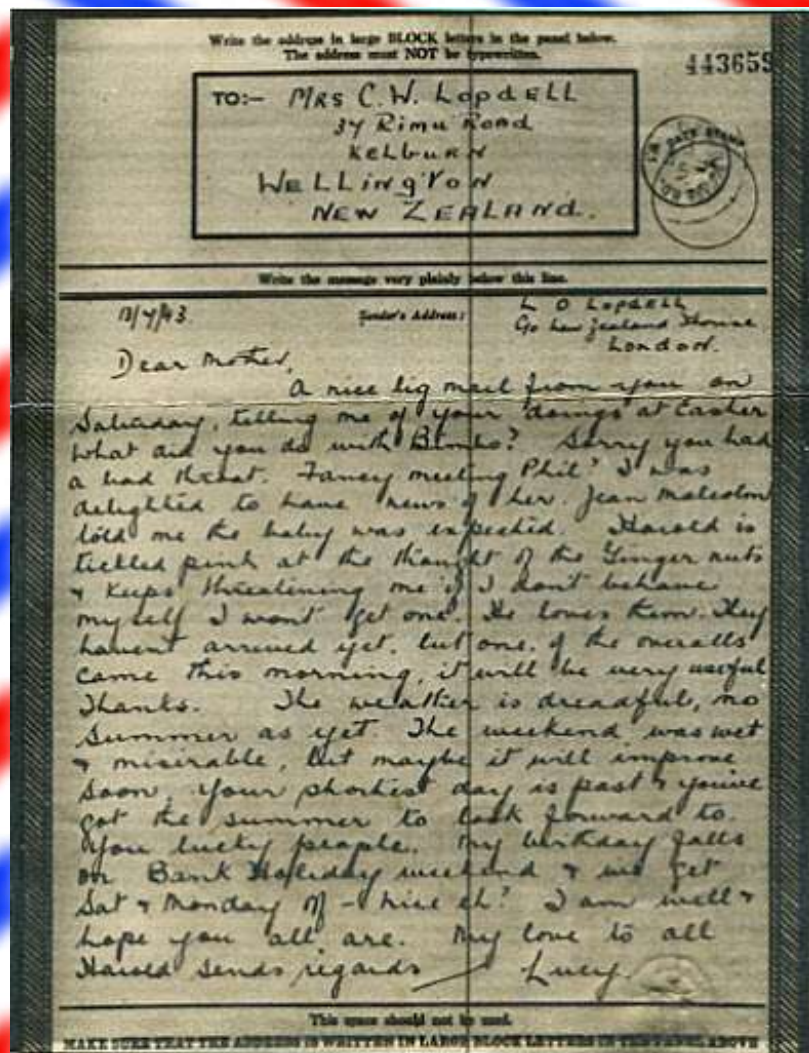 Write the address in large BLOCK letters in the panel below.
The address must NOT be typewritten.
443659
TO:— MRS C.W. LOPDELL
34 Rimu Road
KELBURN
WELLINGTON
NEW ZEALAND.
DATE STAMP
Write the message very plainly below this line.
Sender's Address:
L O LOPDELL
C/o New Zealand House
LONDON.
/43
Dear Mother,
A nice big mail from you on
Saturday, telling me of your doings at Easter
What did you do with Bimbo? Sorry you had
a bad throat. Fancy meeting Phil! I was
delighted to have news of her. Jean Malcolm
told me the baby was expected. Harold is
tickled pink at the thought of the Ginger nuts
& keeps threatening me if I don't behave
myself I wont get one. He loves them. They
havent arrived yet, but one of the overalls
came this morning, it will be very useful
Thanks. The weather is dreadful, no
Summer as yet The weekend was wet
& misirable, but maybe it will improve
soon, Your shortest day is past & you've
got the summer to look forward to.
You lucky people. My birthday falls
on Bank Holiday weekend & we get
Sat & Monday off - nice eh? I am well &
hope you all are. My love to all
Harold sends regards Lucy.
This space should not be used.
MAKE SURE THAT THE ADDRESS IS WRITTEN IN LARGE BLOCK LETTERS IN THE PANEL ABOVE